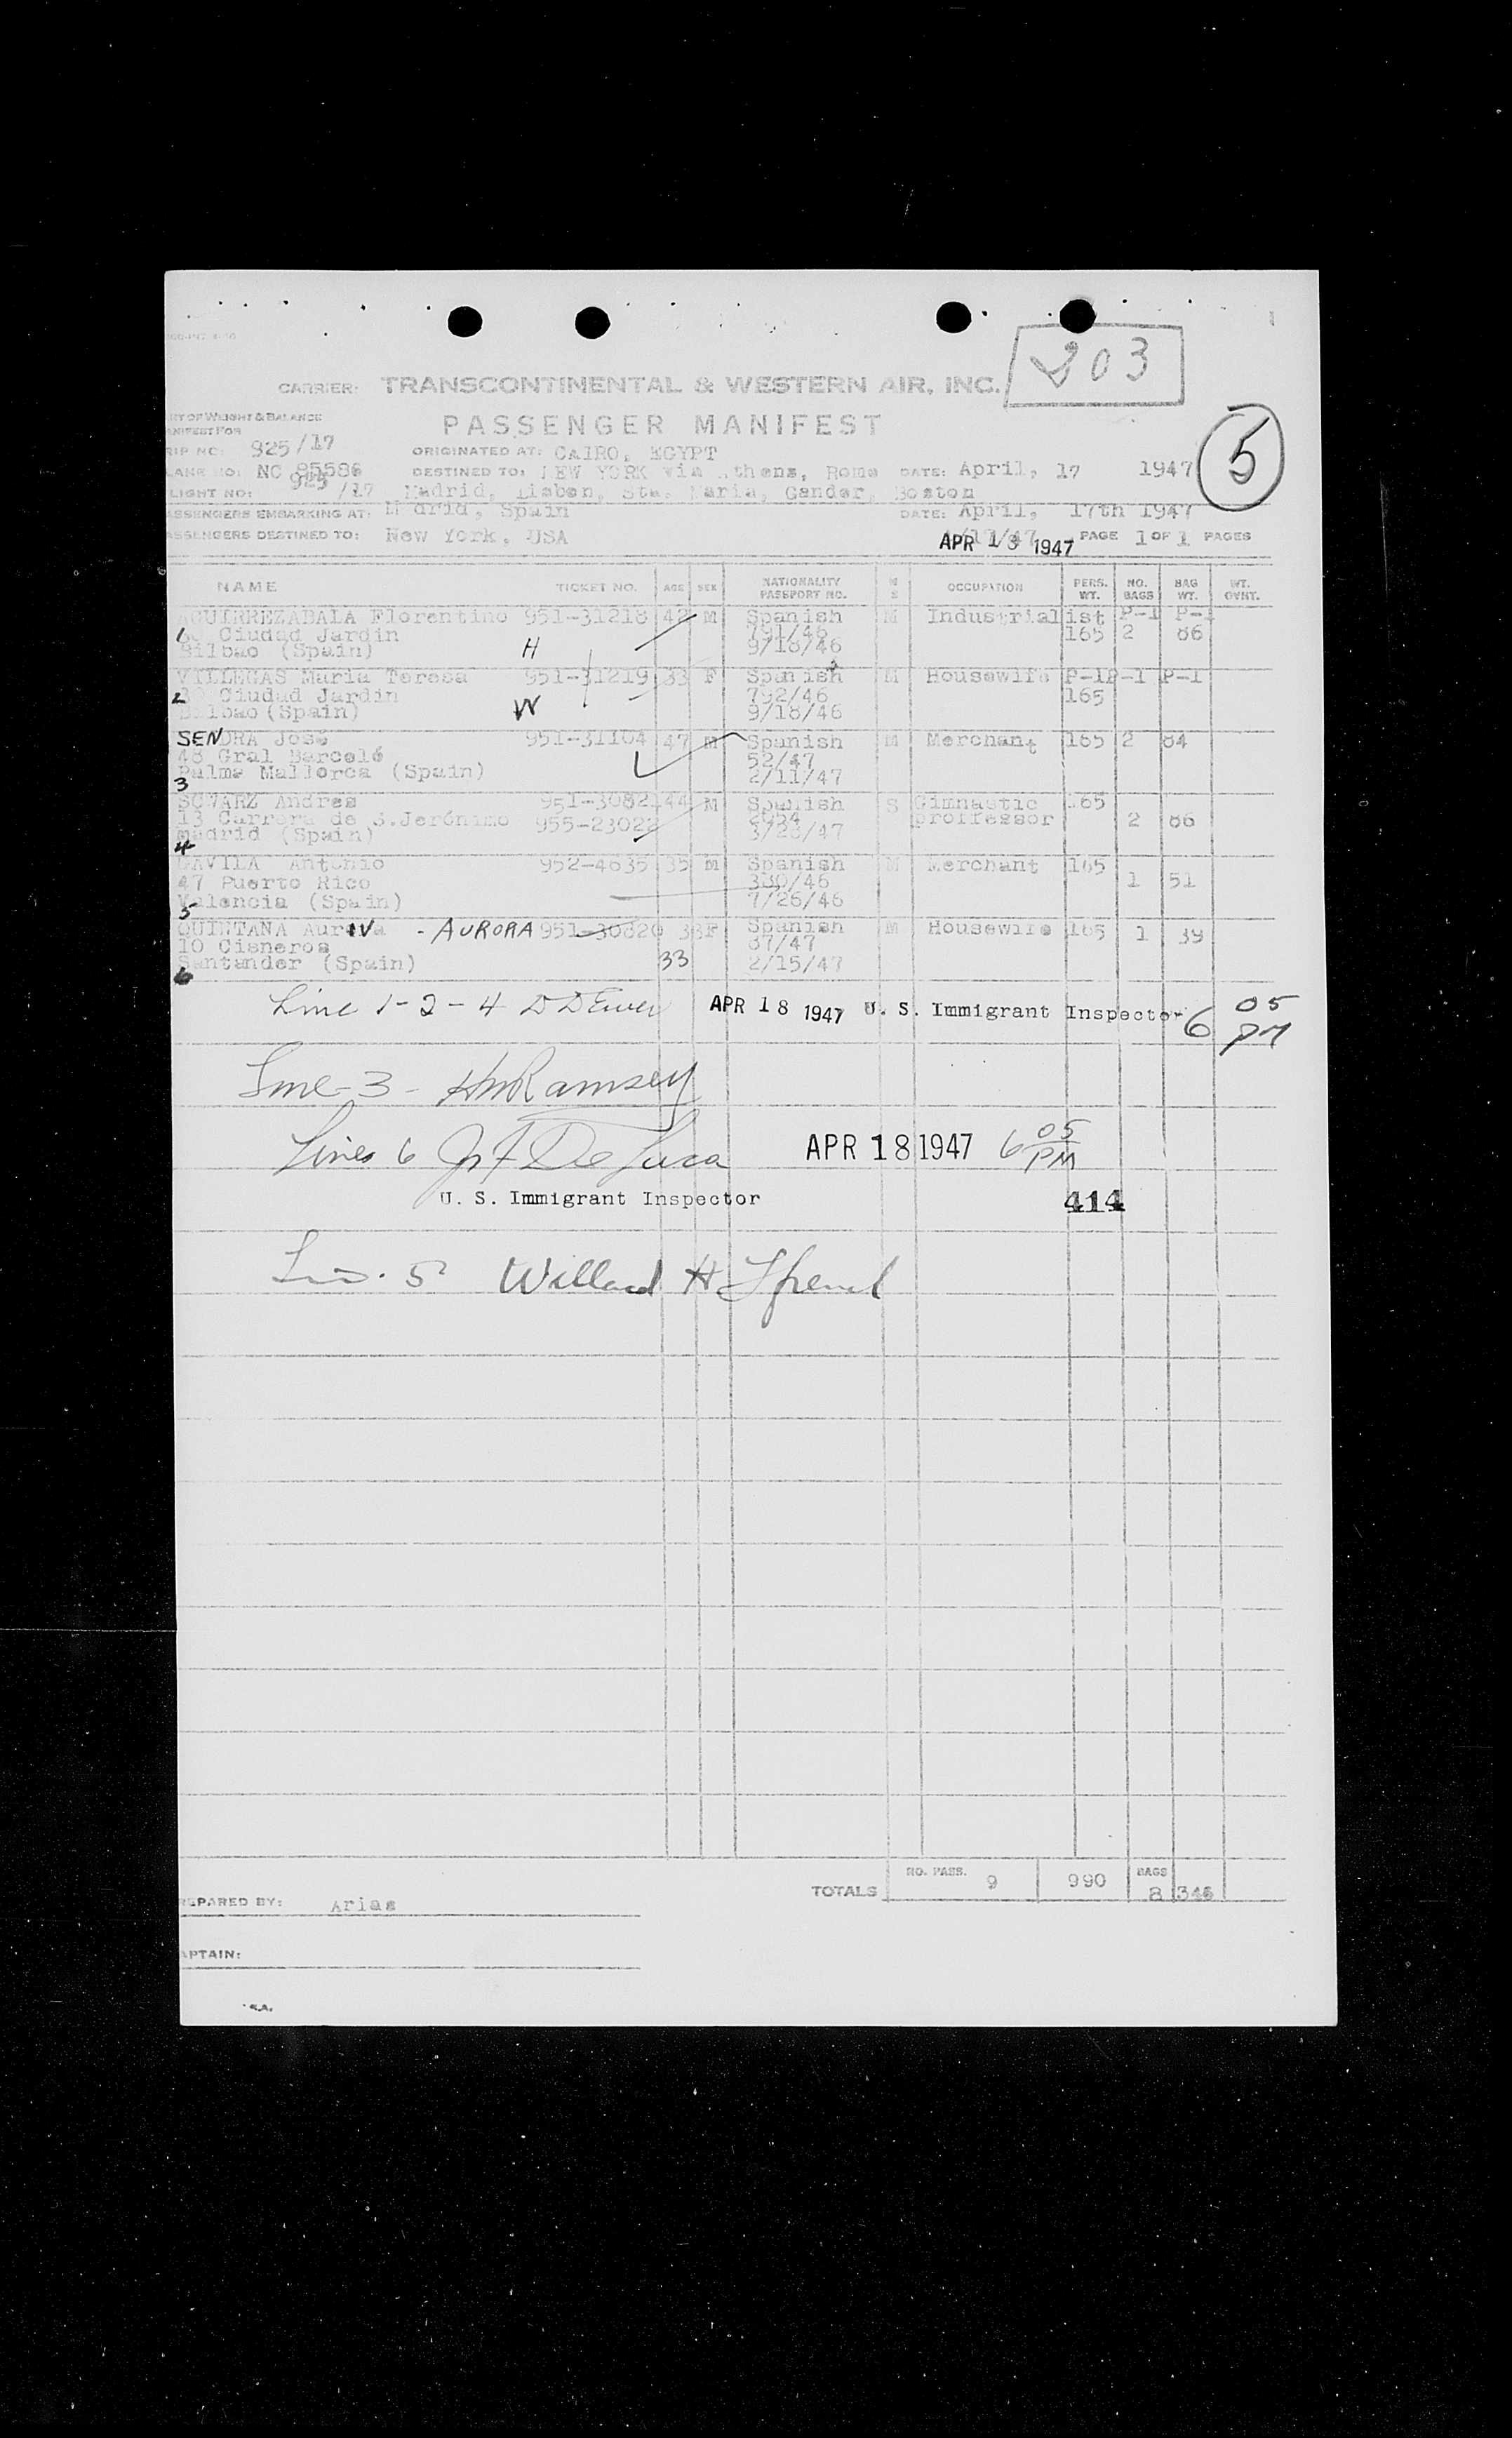 203
CARRIER: TRANSCONTINENTAL & WESTERN AIR, INC.
RY OF WEIGHT & BALANCE
ANIFEST FOR
PASSENGER MANIFEST
5
RIP NO: 925/17 ORIGINATED AT: CAIRO, EGYPT
LANE NO: NC 85586 DESTINED TO: NEW YORK via Athens, Rome DATE: April, 17 1947
LIGHT NO: 925/17 Madrid, Lisbon, Sta. Maria, Gander, Boston
ASSENGERS EMBARKING AT: Madrid, Spain DATE: April, 17th 1947
ASSENGERS DESTINED TO: New York, USA APR 13 1947 PAGE 1 OF 1 PAGES
NAME TICKET NO. AGE SEX NATIONALITY PASSPORT NO. M S OCCUPATION PERS. WT. NO. BAGS BAG WT. WT. OVHT.
AGUIRREZABALA Florentino 951-31218 42 M Spanish M Industrialist P-1 P-1
Ciudad Jardin 791/46 165 2 86
Bilbao (Spain) H 9/18/46
VILLEGAS Maria Teresa 951-31219 33 F Spanish M Housewife P-1 P-1 P-1
2 Ciudad Jardin 792/46 165
Bilbao (Spain) W 9/18/46
SENDRA José 951-31104 47 M Spanish M Merchant 165 2 84
48 Gral Barceló 52/47
Palma Mallorca (Spain) 2/11/47
3
SCWARZ Andres 951-3082 44 M Spanish S Gimnastic 165
13 Carrera de S.Jerónimo 955-23022 2054 proffessor 2 86
Madrid (Spain) 3/28/47
4
DAVILA Antonio 952-4635 35 M Spanish M Merchant 165
47 Puerto Rico 380/46 1 51
Valencia (Spain) 7/26/46
5
QUINTANA Aurora - AURORA 951-30820 33 F Spanish M Housewife 165 1 39
10 Cisneros 87/47
Santander (Spain) 33 2/15/47
6
Line 1-2-4 APR 18 1947 U. S. Immigrant Inspector 6 05 PM
Line-3- Ramsey
Lines 6 De Luca APR 18 1947 6 05 PM
U. S. Immigrant Inspector 414
5 Willard H
TOTALS NO. PASS. 9 990 BAGS 8 346
REPARED BY: Arias
APTAIN: